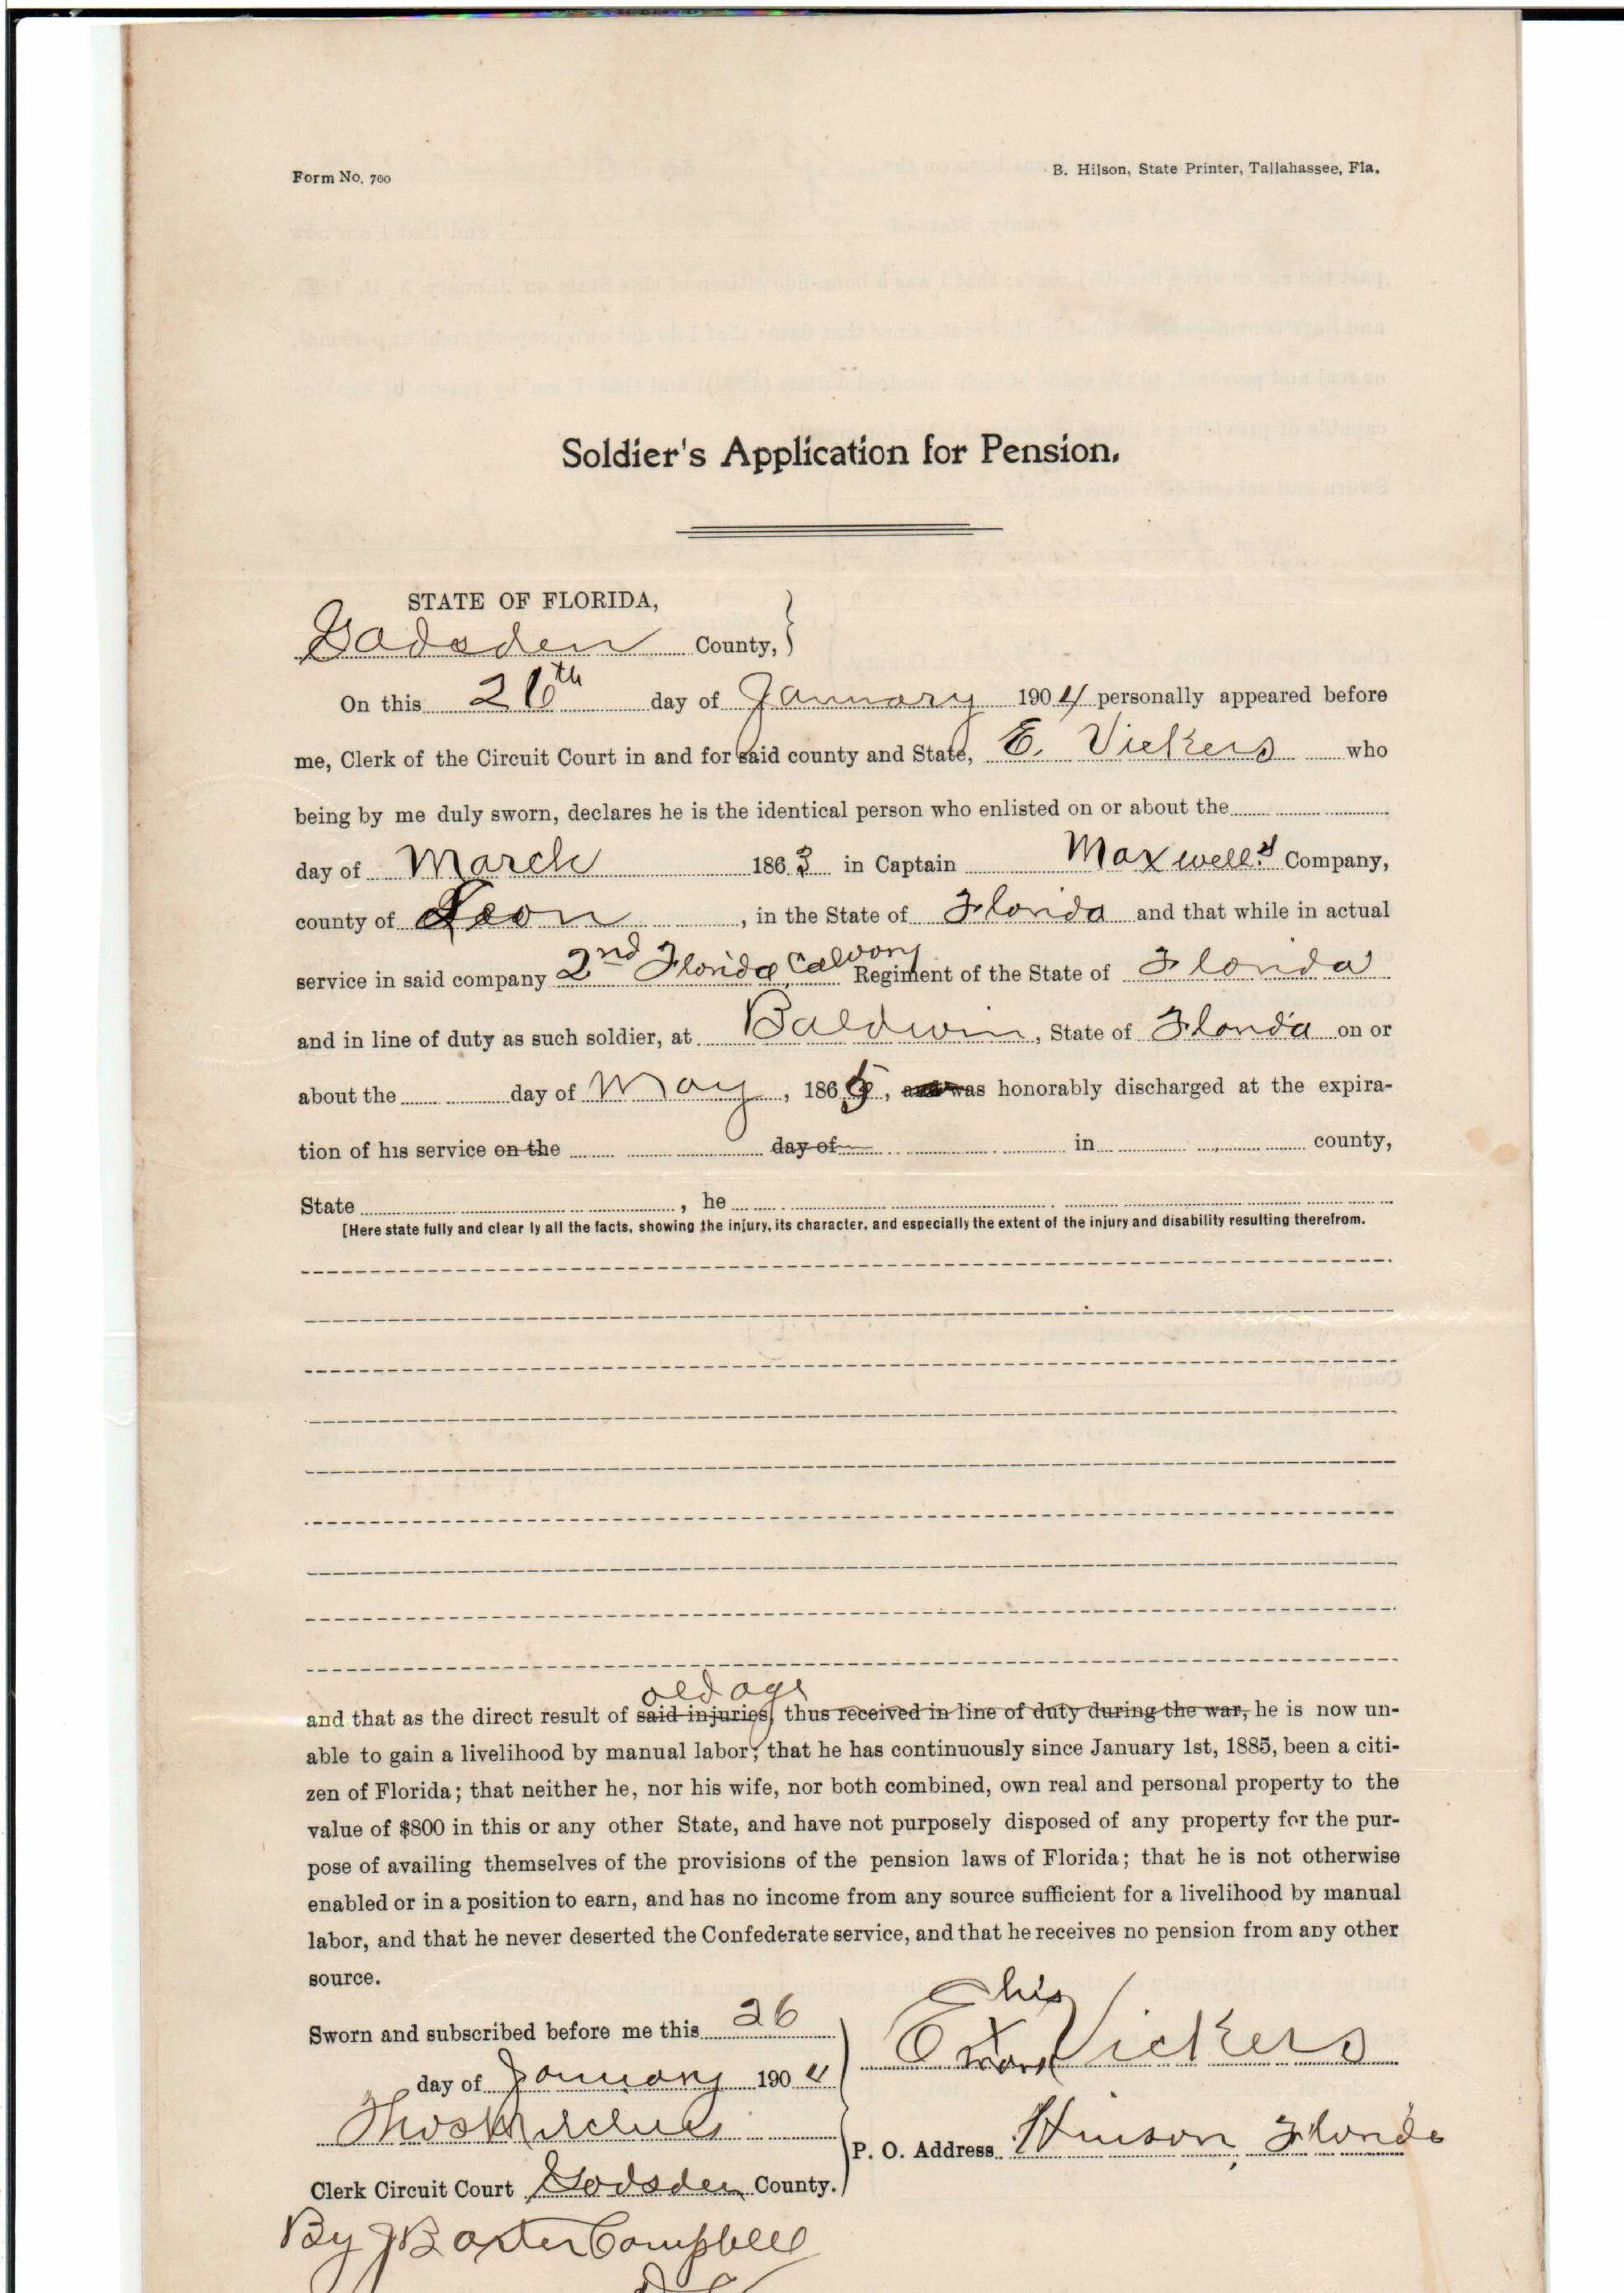 Form No. 700
B. Hilson, State Printer, Tallahassee, Fla.
Soldier's Application for Pension.
STATE OF FLORIDA,
Gadsden County,
On this 26th day of January 1904 personally appeared before
me, Clerk of the Circuit Court in and for said county and State, E. Vickers who
being by me duly sworn, declares he is the identical person who enlisted on or about the
day of March 1863 in Captain Maxwell's Company,
county of Leon, in the State of Florida and that while in actual
service in said company 2nd Florida Calvary Regiment of the State of Florida
and in line of duty as such soldier, at Baldwin, State of Florida on or
about the day of May, 1865, and was honorably discharged at the expira-
tion of his service on the day of in county,
State , he
[Here state fully and clear ly all the facts, showing the injury, its character, and especially the extent of the injury and disability resulting therefrom.
old age
and that as the direct result of said injuries, thus received in line of duty during the war, he is now un-
able to gain a livelihood by manual labor; that he has continuously since January 1st, 1885, been a citi-
zen of Florida; that neither he, nor his wife, nor both combined, own real and personal property to the
value of $800 in this or any other State, and have not purposely disposed of any property for the pur-
pose of availing themselves of the provisions of the pension laws of Florida; that he is not otherwise
enabled or in a position to earn, and has no income from any source sufficient for a livelihood by manual
labor, and that he never deserted the Confederate service, and that he receives no pension from any other
source.
Sworn and subscribed before me this 26
day of January 1904
his
E x Vickers
mark
Thos
P. O. Address Hinson, Florida
Clerk Circuit Court Gadsden County.
By J Baxter Campbell